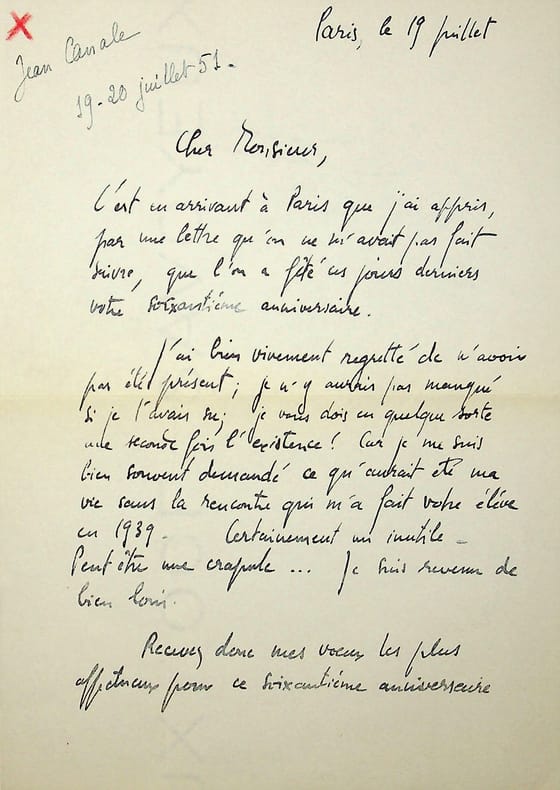 X
Jean Canale
19-20 juillet 51.
Paris, le 19 juillet
Cher Monsieur,
C'est en arrivant à Paris que j'ai appris,
par une lettre qu'on ne m'avait pas fait
suivre, que l'on a fêté ces jours derniers
votre soixantième anniversaire.
J'ai bien vivement regretté de n'avoir
pas été présent ; je n'y aurais pas manqué
si je l'avais su ; je vous dois en quelque sorte
une seconde fois l'existence ! Car je me suis
bien souvent demandé ce qu'aurait été ma
vie sans la rencontre qui m'a fait votre élève
en 1939. Certainement un inutile -
Peut être une crapule ... Je suis revenu de
bien loin.
Recevez donc mes voeux les plus
affectueux pour ce soixantième anniversaire